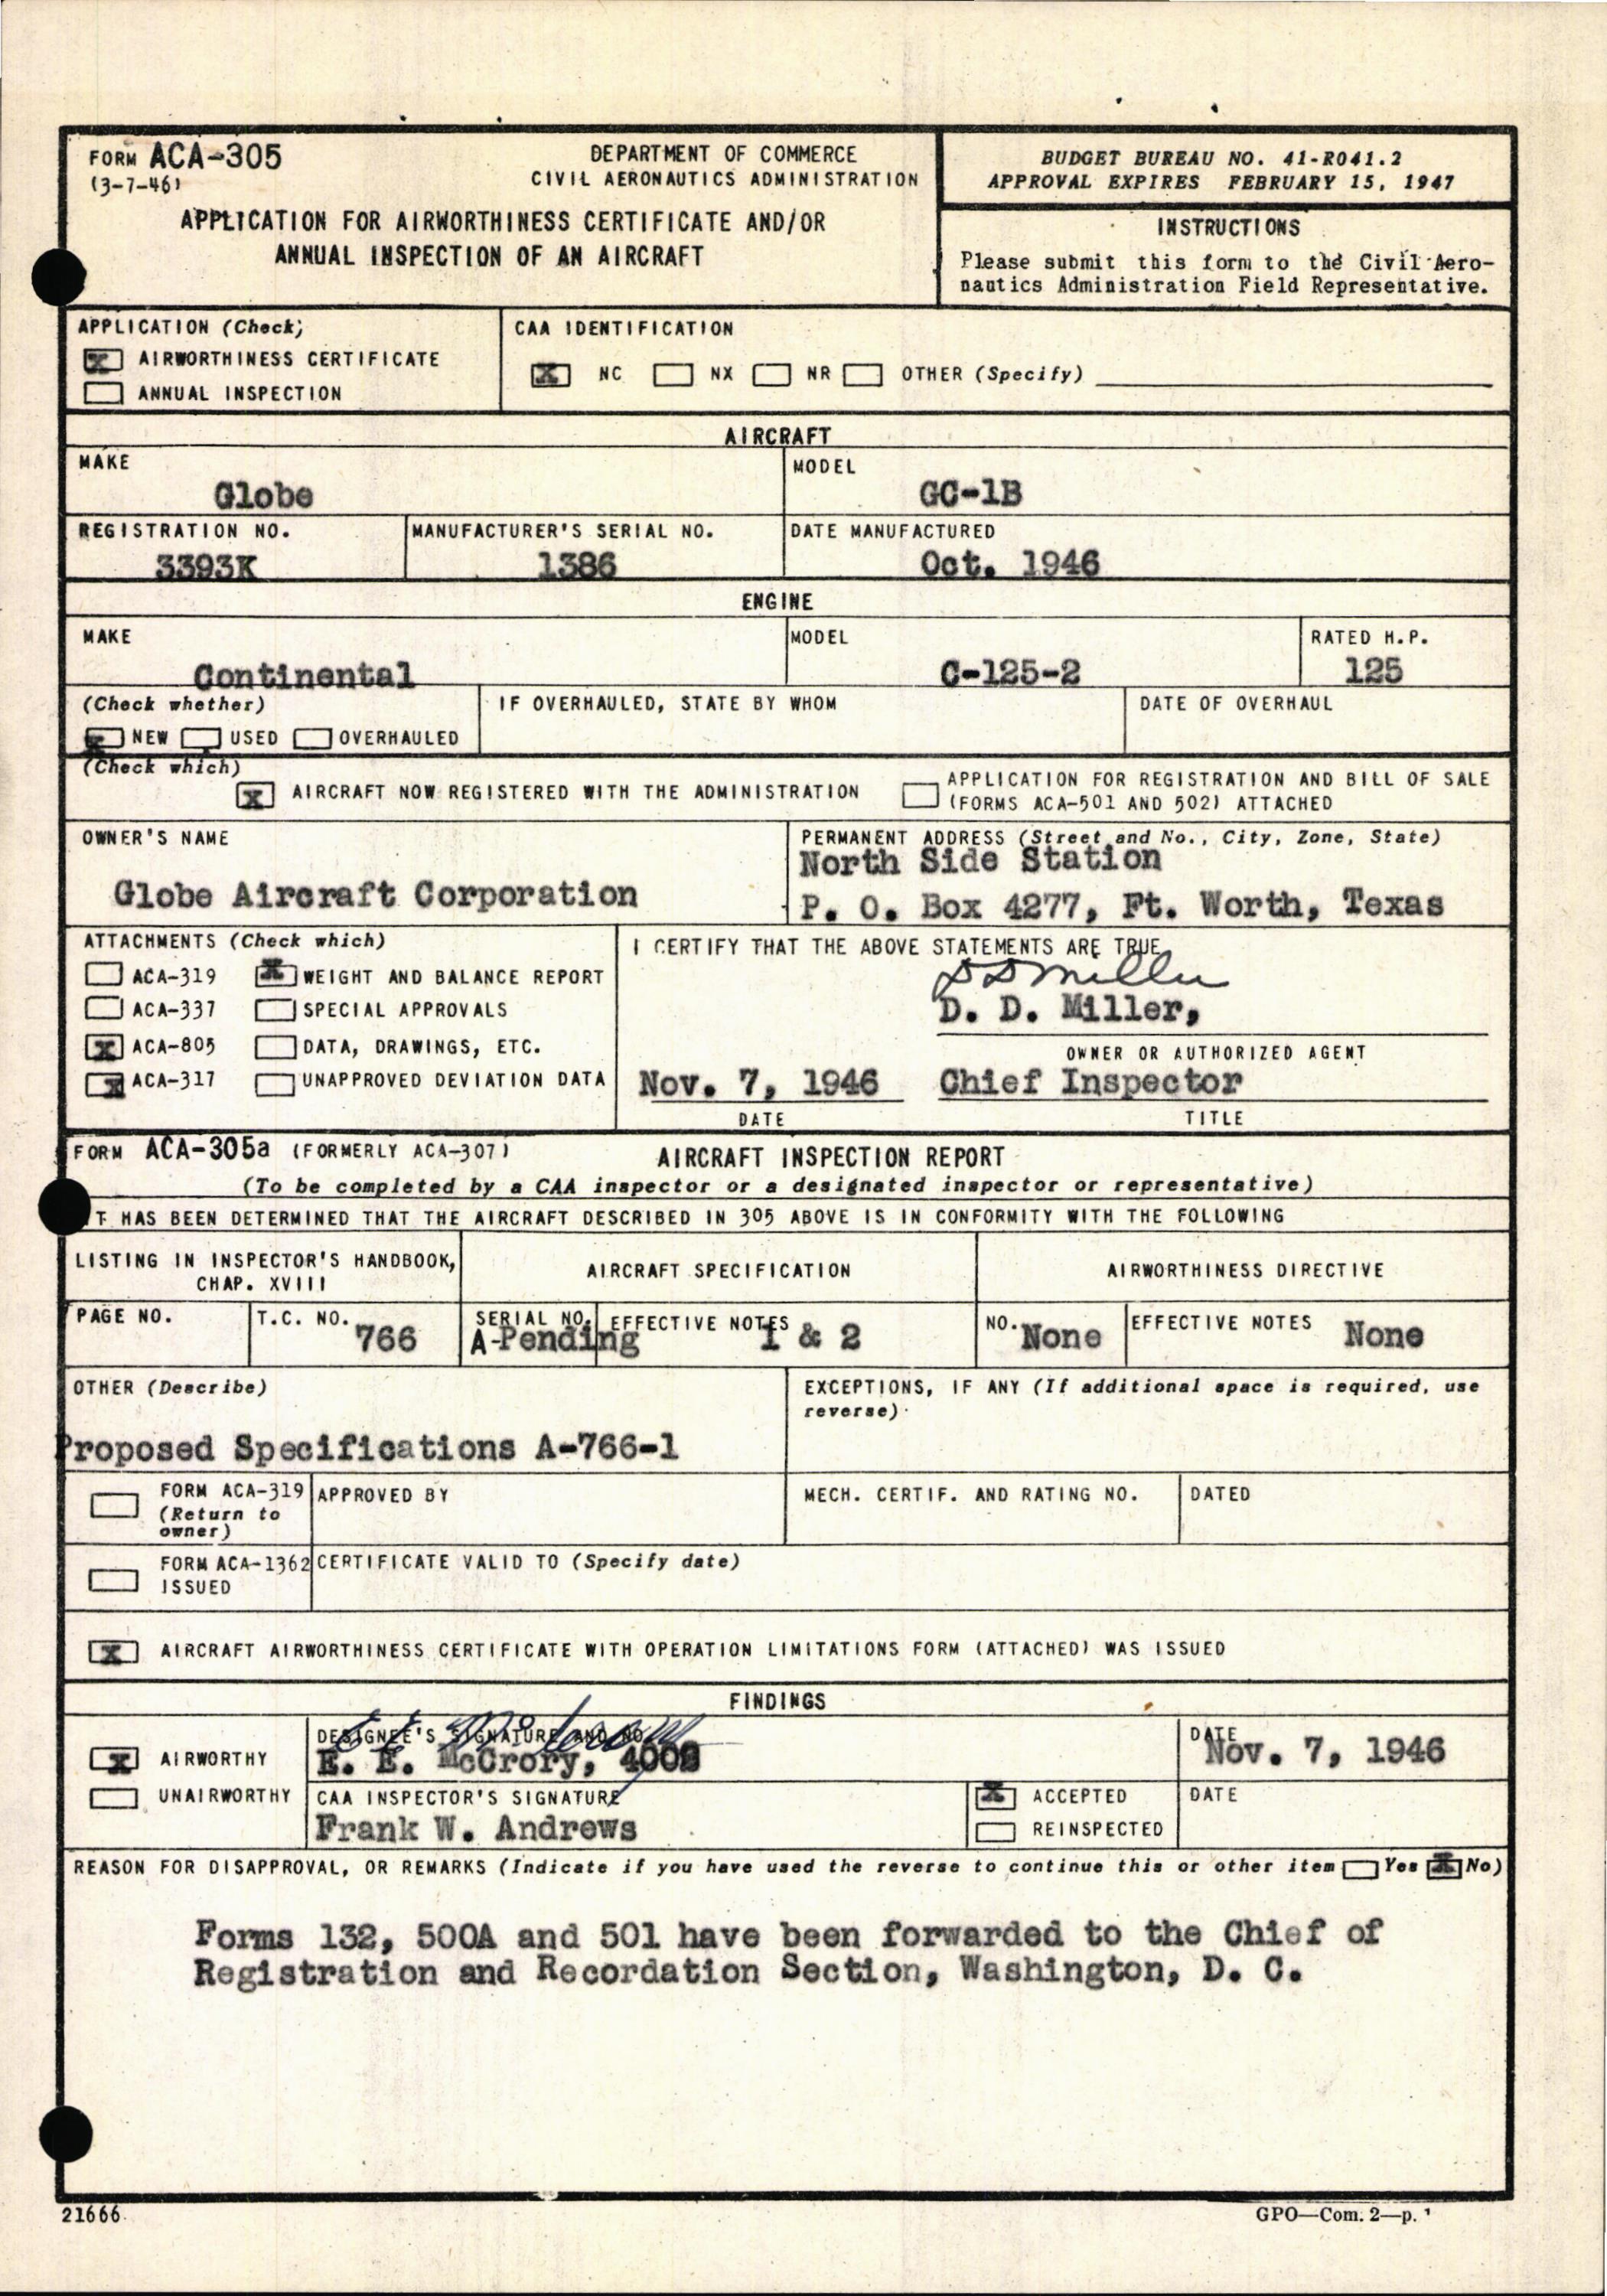 FORM ACA-305
(3-7-46)
DEPARTMENT OF COMMERCE
CIVIL AERONAUTICS ADMINISTRATION
APPLICATION FOR AIRWORTHINESS CERTIFICATE AND/OR
ANNUAL INSPECTION OF AN AIRCRAFT
BUDGET BUREAU NO. 41-R041.2
APPROVAL EXPIRES FEBRUARY 15, 1947
INSTRUCTIONS
Please submit this form to the Civil Aero-
nautics Administration Field Representative.
APPLICATION (Check)
X AIRWORTHINESS CERTIFICATE
ANNUAL INSPECTION
CAA IDENTIFICATION
X NC NX NR OTHER (Specify)
AIRCRAFT
MAKE
Globe
MODEL
GC-1B
REGISTRATION NO.
3393K
MANUFACTURER'S SERIAL NO.
1386
DATE MANUFACTURED
Oct. 1946
ENGINE
MAKE
Continental
MODEL
C-125-2
RATED H.P.
125
(Check whether)
X NEW USED OVERHAULED
IF OVERHAULED, STATE BY WHOM
DATE OF OVERHAUL
(Check which)
X AIRCRAFT NOW REGISTERED WITH THE ADMINISTRATION
APPLICATION FOR REGISTRATION AND BILL OF SALE
(FORMS ACA-501 AND 502) ATTACHED
OWNER'S NAME
Globe Aircraft Corporation
PERMANENT ADDRESS (Street and No., City, Zone, State)
North Side Station
P. O. Box 4277, Ft. Worth, Texas
ATTACHMENTS (Check which)
ACA-319 X WEIGHT AND BALANCE REPORT
ACA-337 SPECIAL APPROVALS
X ACA-805 DATA, DRAWINGS, ETC.
X ACA-317 UNAPPROVED DEVIATION DATA
I CERTIFY THAT THE ABOVE STATEMENTS ARE TRUE.
D D Miller
D. D. Miller,
OWNER OR AUTHORIZED AGENT
Nov. 7, 1946 Chief Inspector
DATE TITLE
FORM ACA-305a (FORMERLY ACA-307) AIRCRAFT INSPECTION REPORT
(To be completed by a CAA inspector or a designated inspector or representative)
T HAS BEEN DETERMINED THAT THE AIRCRAFT DESCRIBED IN 305 ABOVE IS IN CONFORMITY WITH THE FOLLOWING
LISTING IN INSPECTOR'S HANDBOOK,
CHAP. XVIII
AIRCRAFT SPECIFICATION
AIRWORTHINESS DIRECTIVE
PAGE NO.
T.C. NO.
766
SERIAL NO.
A-Pending
EFFECTIVE NOTES
1 & 2
NO. None
EFFECTIVE NOTES None
OTHER (Describe)
Proposed Specifications A-766-1
EXCEPTIONS, IF ANY (If additional space is required, use
reverse)
FORM ACA-319
(Return to
owner)
APPROVED BY
MECH. CERTIF. AND RATING NO.
DATED
FORM ACA-1362
ISSUED
CERTIFICATE VALID TO (Specify date)
X AIRCRAFT AIRWORTHINESS CERTIFICATE WITH OPERATION LIMITATIONS FORM (ATTACHED) WAS ISSUED
FINDINGS
X AIRWORTHY
UNAIRWORTHY
DESIGNEE'S SIGNATURE AND NO.
E E McCrory
E. E. McCrory, 4002
DATE
Nov. 7, 1946
CAA INSPECTOR'S SIGNATURE
Frank W. Andrews
X ACCEPTED
REINSPECTED
DATE
REASON FOR DISAPPROVAL, OR REMARKS (Indicate if you have used the reverse to continue this or other item Yes X No)
Forms 132, 500A and 501 have been forwarded to the Chief of
Registration and Recordation Section, Washington, D. C.
21666
GPO—Com. 2—p. 1